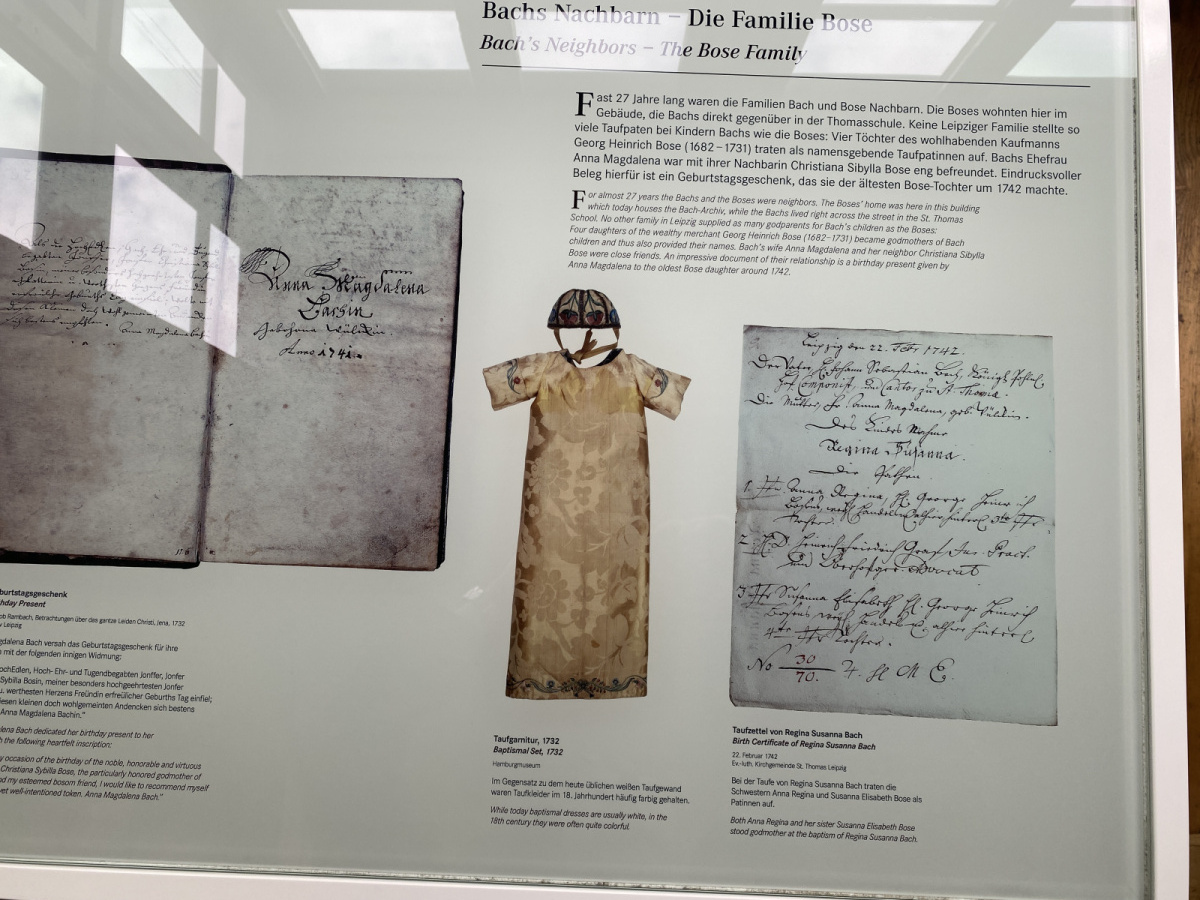 Bachs Nachbarn – Die Familie Bose
Bach's Neighbors – The Bose Family
Fast 27 Jahre lang waren die Familien Bach und Bose Nachbarn. Die Boses wohnten hier im
Gebäude, die Bachs direkt gegenüber in der Thomasschule. Keine Leipziger Familie stellte so
viele Taufpaten bei Kindern Bachs wie die Boses: Vier Töchter des wohlhabenden Kaufmanns
Georg Heinrich Bose (1682–1731) traten als namensgebende Taufpatinnen auf. Bachs Ehefrau
Anna Magdalena war mit ihrer Nachbarin Christiana Sibylla Bose eng befreundet. Eindrucksvoller
Beleg hierfür ist ein Geburtstagsgeschenk, das sie der ältesten Bose-Tochter um 1742 machte.
For almost 27 years the Bachs and the Boses were neighbors. The Boses' home was here in this building
which today houses the Bach-Archiv, while the Bachs lived right across the street in the St. Thomas
School. No other family in Leipzig supplied as many godparents for Bach's children as the Boses:
Four daughters of the wealthy merchant Georg Heinrich Bose (1682–1731) became godmothers of Bach
children and thus also provided their names. Bach's wife Anna Magdalena and her neighbor Christiana Sibylla
Bose were close friends. An impressive document of their relationship is a birthday present given by
Anna Magdalena to the oldest Bose daughter around 1742.
Anna Magdalena
Bachin
Anno 1741.
Leipzig den 22. Febr 1742.
Johann Sebastian Bach,
Componist, St. Thomä.
Die Mutter, Fr. Anna Magdalena, geb.
Des Kindes Nahme
Regina Susanna.
Die Pathen.
1. Anna Regina, H. George Heinrich
2. H. D. Heinrich Friedrich Graf, Jur. Pract.
und Advocat
3 Susanna Elisabeth, H. George Heinrich
No 30
70.
burtstagsgeschenk
hday Present
ob Rambach, Betrachtungen über das gantze Leiden Christi, Jena, 1732
Leipzig
gdalena Bach versah das Geburtstagsgeschenk für ihre
mit der folgenden innigen Widmung:
ochEdlen, Hoch- Ehr- und Tugendbegabten Jonffer, Jonfer
Sybilla Bosin, meiner besonders hochgeehrtesten Jonfer
u. werthesten Herzens Freündin erfreülicher Geburths Tag einfiel;
iesen kleinen doch wohlgemeinten Andencken sich bestens
Anna Magdalena Bachin."
lena Bach dedicated her birthday present to her
h the following heartfelt inscription:
y occasion of the birthday of the noble, honorable and virtuous
Christiana Sybilla Bose, the particularly honored godmother of
d my esteemed bosom friend, I would like to recommend myself
yet well-intentioned token. Anna Magdalena Bach."
Taufgarnitur, 1732
Baptismal Set, 1732
Hamburgmuseum
Im Gegensatz zu dem heute üblichen weißen Taufgewand
waren Taufkleider im 18. Jahrhundert häufig farbig gehalten.
While today baptismal dresses are usually white, in the
18th century they were often quite colorful.
Taufzettel von Regina Susanna Bach
Birth Certificate of Regina Susanna Bach
22. Februar 1742
Ev.-luth. Kirchgemeinde St. Thomas Leipzig
Bei der Taufe von Regina Susanna Bach traten die
Schwestern Anna Regina und Susanna Elisabeth Bose als
Patinnen auf.
Both Anna Regina and her sister Susanna Elisabeth Bose
stood godmother at the baptism of Regina Susanna Bach.